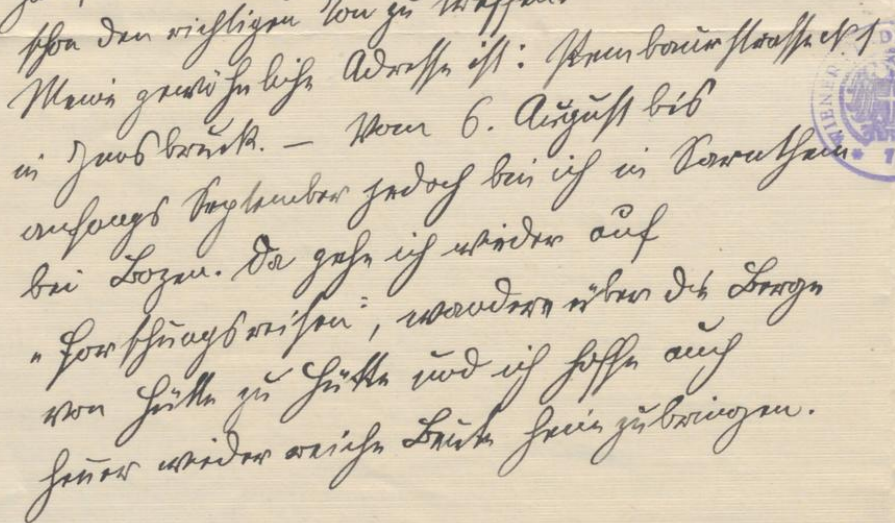 schon den richtigen Ton zu treffen.
Meine gewöhnliche Adresse ist: Pembaurstrasse
in Innsbruck. – Vom 6. August bis
anfangs September jedoch bin ich in Sarnthein
bei Bozen. Da gehe ich wieder auf
„Forschungsreisen", wandere über die Berge
von Hütte zu Hütte und ich hoffe auch
heuer wieder reiche Beute heimzubringen.
WIENER